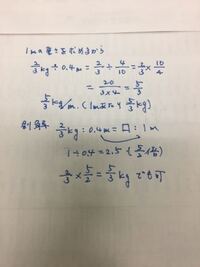 1mの重さを求めるから
2/3 kg ÷ 0.4m = 2/3 ÷ 4/10 = 2/3 × 10/4
= 20/3×4 = 5/3
5/3 kg/m. (1mあたり 5/3 kg)
別解 2/3 kg : 0.4m = □ : 1m
1 ÷ 0.4 = 2.5 (5/2
2/3 × 5/2 = 5/3 kg でも可